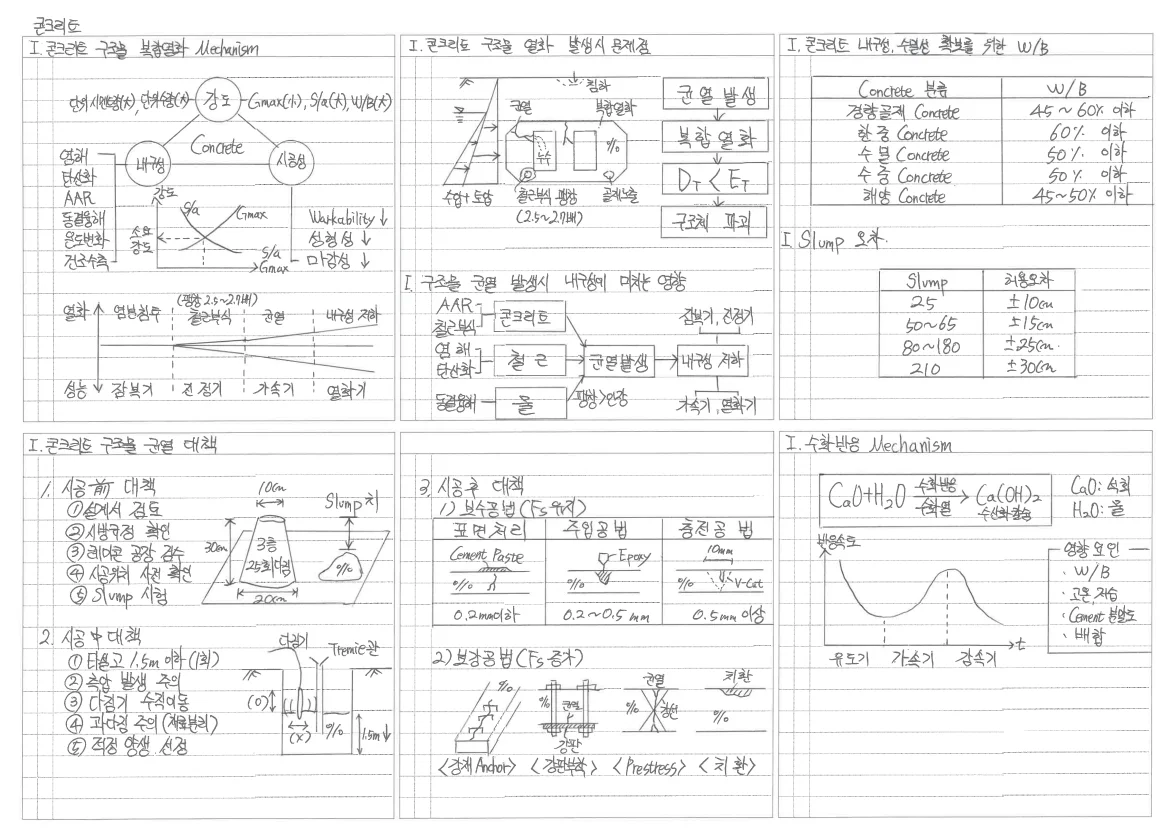 콘크리트
I. 콘크리트 구조물 복합열화 Mechanism
단위시멘트량(大), 단위수량(大) 강도 Gmax(小), S/a(大), W/B(大)
Concrete
내구성
시공성
염해
탄산화
AAR
동결융해
온도변화
건조수축
강도
S/a
Gmax
소요
강도
S/a
Gmax
Warkability ↓
성형성 ↓
마감성 ↓
(팽창 2.5~2.7배)
열화 염분침투 철근부식 균열 내구성 저하
성능 잠복기 진전기 가속기 열화기
I. 콘크리트 구조물 열화 발생시 문제점
침하
균열 복합열화
누수
%
수압+토압 철근부식 팽창 골재노출
(2.5~2.7배)
균열 발생
복합 열화
D_T < E_T
구조체 파괴
I. 구조물 균열 발생시 내구성에 미치는 영향
AAR
철근부식
콘크리트
염해
탄산화
철근
동결융해
물
균열발생
팽창>인장
잠복기, 진전기
내구성 저하
가속기, 열화기
I. 콘크리트 내구성, 수밀성 확보를 위한 W/B
Concrete 분류 W/B
경량골재 Concrete 45~60% 이하
한중 Concrete 60% 이하
수밀 Concrete 50% 이하
수중 Concrete 50% 이하
해양 Concrete 45~50% 이하
I. Slump 오차.
Slump 허용오차
25 ±10cm
50~65 ±15cm
80~180 ±25cm.
210 ±30cm
I. 콘크리트 구조물 균열 대책
1. 시공 前 대책
① 설계서 검토
② 시방규정 확인
③ 레미콘 공장 검수
④ 시공위치 사전 확인
⑤ Slump 시험
10cm
30cm
3층
25회다짐
20cm
Slump 치
%
2. 시공 中 대책
① 타설고 1.5m 이하 (1회)
② 측압 발생 주의
③ 다짐기 수직이동
④ 과다짐 주의 (재료분리)
⑤ 적정 양생 선정
다짐기
Tremie관
(O)
(X)
%
1.5m↓
3. 시공 후 대책
1) 보수공법 (Fs 유지)
표면처리 주입공법 충전공법
Cement Paste
%
Epoxy
%
10mm
%
V-Cut
0.2mm이하 0.2~0.5mm 0.5mm 이상
2) 보강공법 (Fs 증가)
%
%
균열
강판
균열
%
강선
치환
%
<강재 Anchor> <강판부착> <Prestress> <치환>
I. 수화반응 Mechanism
CaO+H₂O 수화반응 → 수화열 Ca(OH)₂ 수산화칼슘
CaO: 석회
H₂O: 물
반응속도
t
유도기 가속기 감속기
영향 요인
· W/B
· 고온, 저습
· Cement 분말도
· 배합